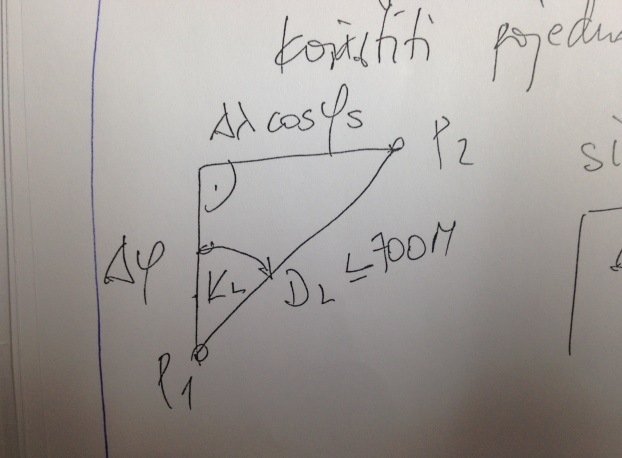 koristiti pojedn
Δλ cosφs
P2
si
Δφ
KL
DL ≤ 700M
P1